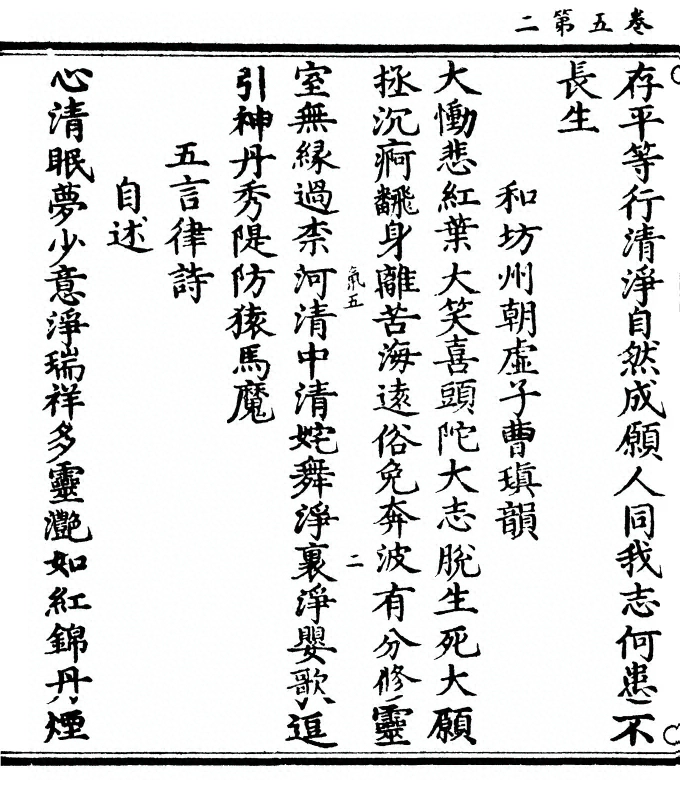 卷五第二
存平等行清淨自然成願人同我志何患不
長生
和坊州朝虛子曹瑱韻
大慟悲紅葉大笑喜頭陀大志脫生死大願
拯沉痾飜身離苦海遠俗免奔波有分修靈
氣五
二
室無緣過柰河清中清姹舞淨裏淨嬰歌追
引神丹秀隄防猿馬魔
五言律詩
自述
心清眠夢少意淨瑞祥多靈灔如紅錦丹煙